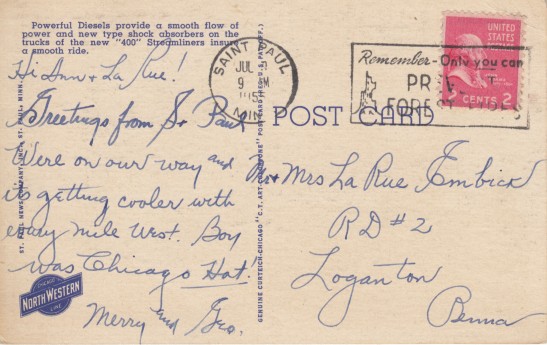 Powerful Diesels provide a smooth flow of
power and new type shock absorbers on the
trucks of the new "400" Streamliners insure
a smooth ride.
Hi Ann & La Rue!
Greetings from St Paul
Were on our way and
its getting cooler with
every mile West. Boy
was Chicago Hot!
Merry and Geo.
ST. PAUL NEWS COMPANY, INC., ST. PAUL, MINN.
CHICAGO
NORTH WESTERN
LINE
GENUINE CURTEICH-CHICAGO "C.T. ART-COLORTONE" POST CARD (REG. U.S. PAT. OFF.)
SAINT PAUL
JUL
9 M
195
MINN
Remember - Only you can
PREVENT
FOREST FIRES
UNITED
STATES
CENTS 2
POST CARD
Mr & Mrs La Rue Embick
RD #2
Loganton
Penna